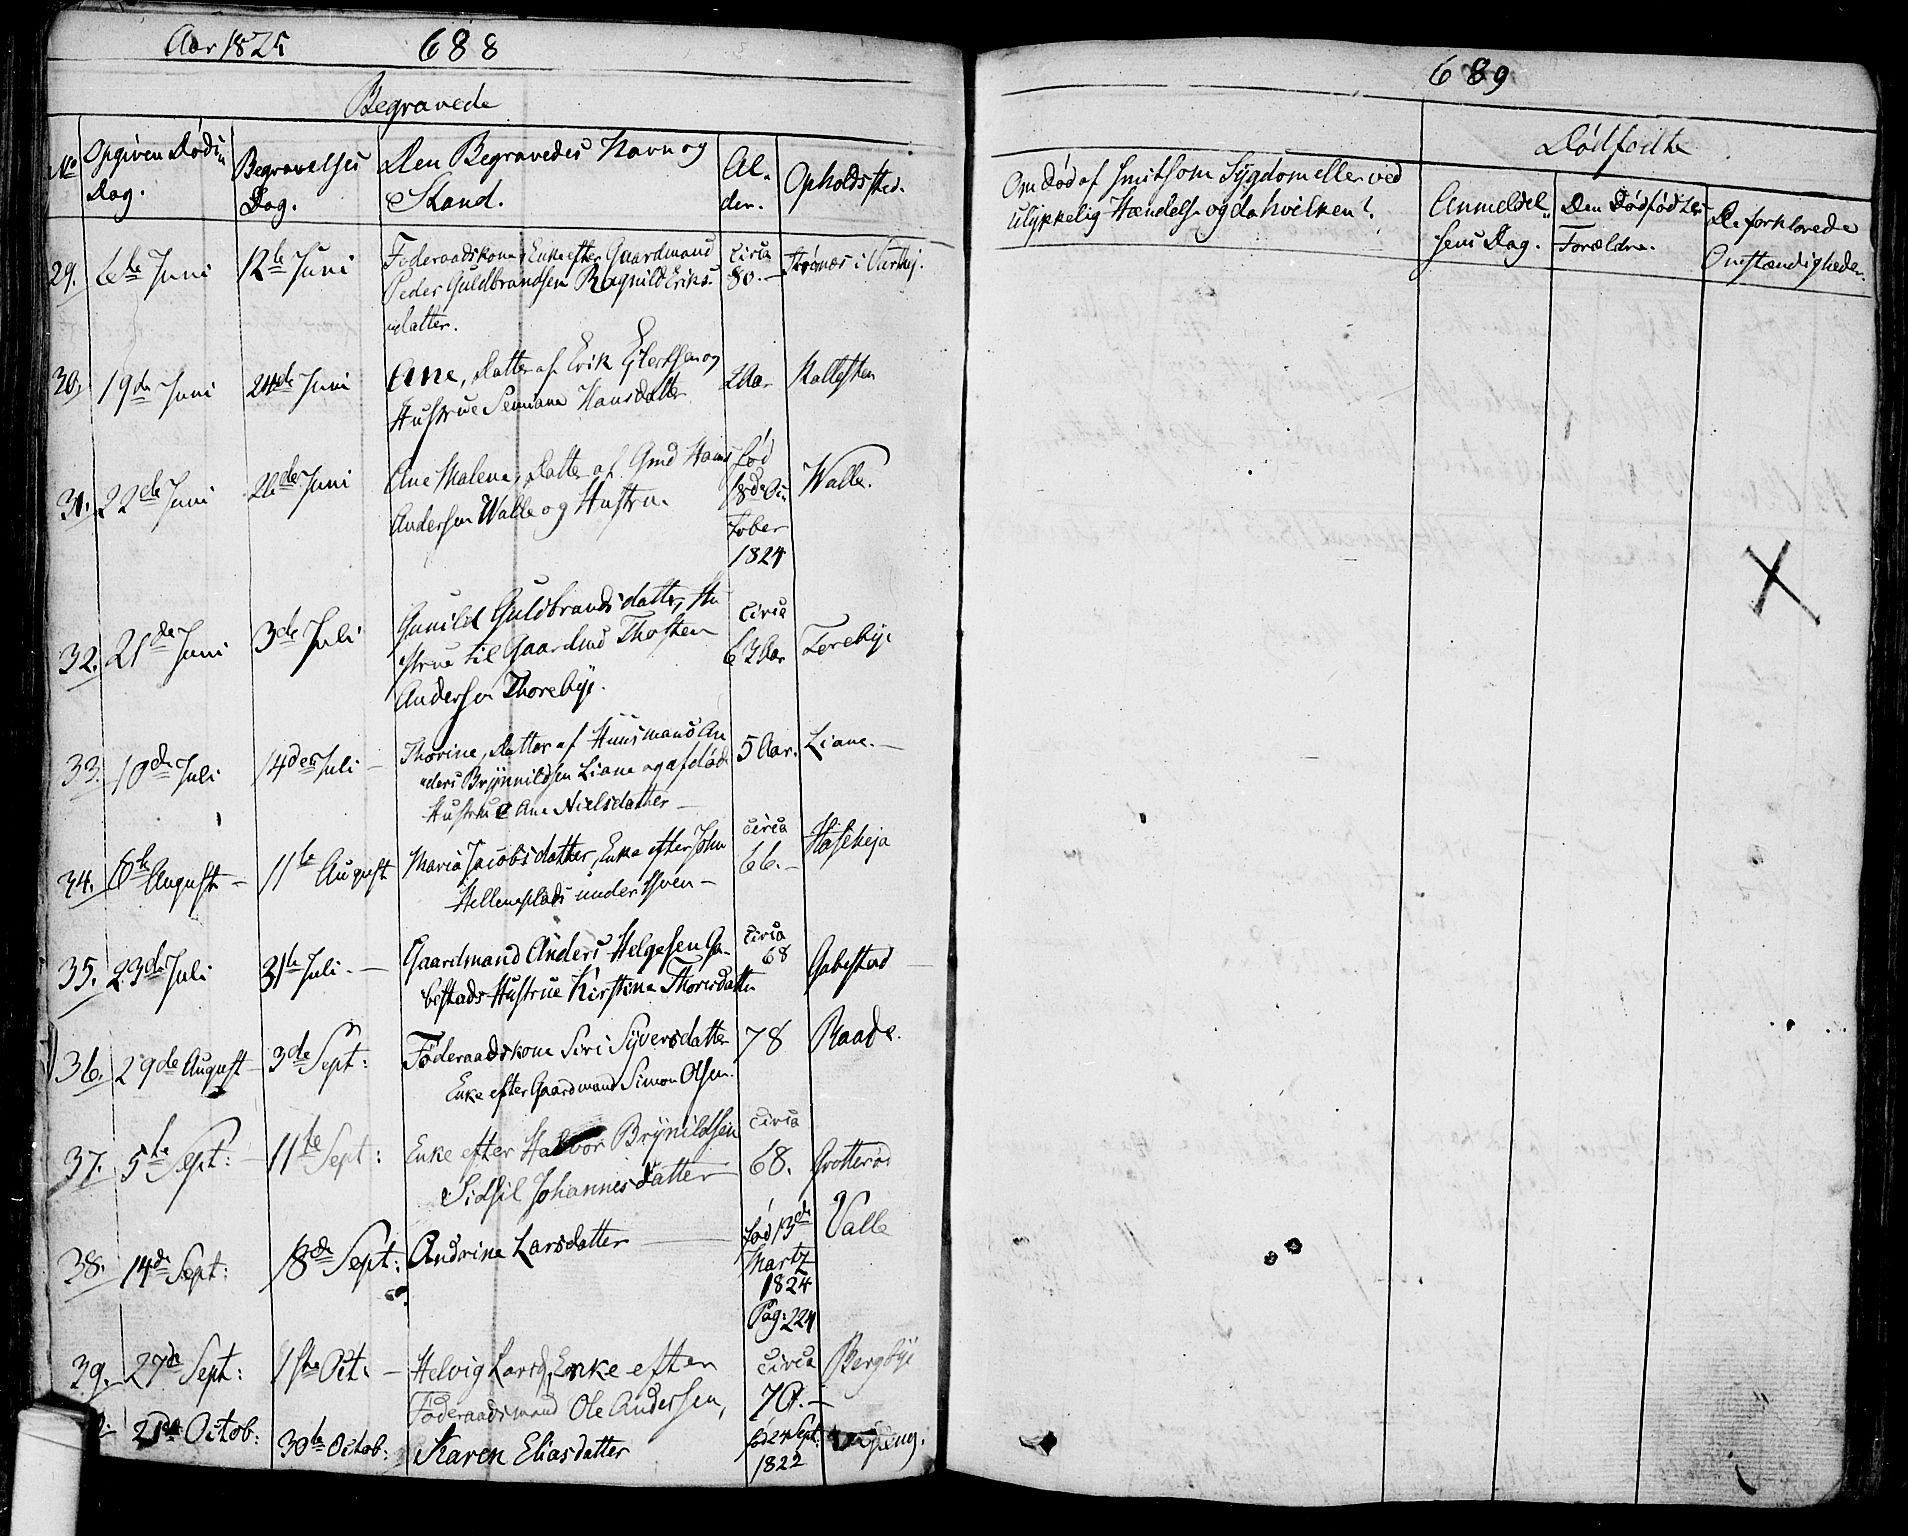 Aar 1825 688
Begravede
No
Opgiven Døds
Dag.
Begravelses
Dag.
Den Begravedes Navn og
Stand.
Al-
der.
Opholdsted.
29. 6te Juni 12te Juni
Føderaadskone Enke efter Gaardmand
Peder Guldbrandsen Ragnild Eriks-
datter.
circa
80.-
30. 19de Juni 24de Juni
Ane, Datter af Erik Ejlertsen og
Hustrue Hansdatter
2 Aar
31. 22de Juni 26de Juni
Ane Malene, Datter af Gmd Hans
Andersen Walle og Hustru
fød
18de Oc
tober
1824
Walle.
32. 21de Juni 3de Juli
Gunild Guldbrandsdatter, Hu
strue til Gaardmd Thosten
Andersen Thorebye.
Circa
62 Aar
Torebye
33. 10de Juli 14de Juli -
Thorine, Datter af Huusmand An
ders Brynnildsen Liane og afdød
Hustrue Ane Nielsdatter -
5 Aar.
Liane. -
34. 6te August - 11te August
Maria Jacobsdatter, Enke efter John
Helleneplads under
circa
66.-
35. 23de Juli 31te Juli. -
Gaardmand Anders Helgesen Ga-
bestads Hustrue Kirstine Thorisdatter
Circa
68
Gabestad
36. 29de August - 3de Sept:
Føderaadskone Siri Syversdatter
Enke efter Gaardmand Simon Olsen.
78
Raade.
37. 5te Sept: - 11te Sept:
Enke efter Halvor Brynildsen
Sidsil Johannesdatter
circa
68.
Grotterød
38. 14de Sept: 18de Sept:
Andrine Larsdatter
fød 13de
Martz
1824
Pag: 224
Valle
39. 27de Sept: 1ste Oct. -
Helvig Larsd, Enke efter
Føderaadsmand Ole Andersen,
circa
70.-
Bergbye
21de Octob: 30te Octob:
Karen Eliasdatter
Sept.
1822
689
Om Død af smitsom Sygdom eller ved
ulykkelig Hændelse og da hvilken?
Dødfødte
Anmeldel
sens Dag.
Den Dødfødtes
Forældre.
De forklarede
Omstændigheder.